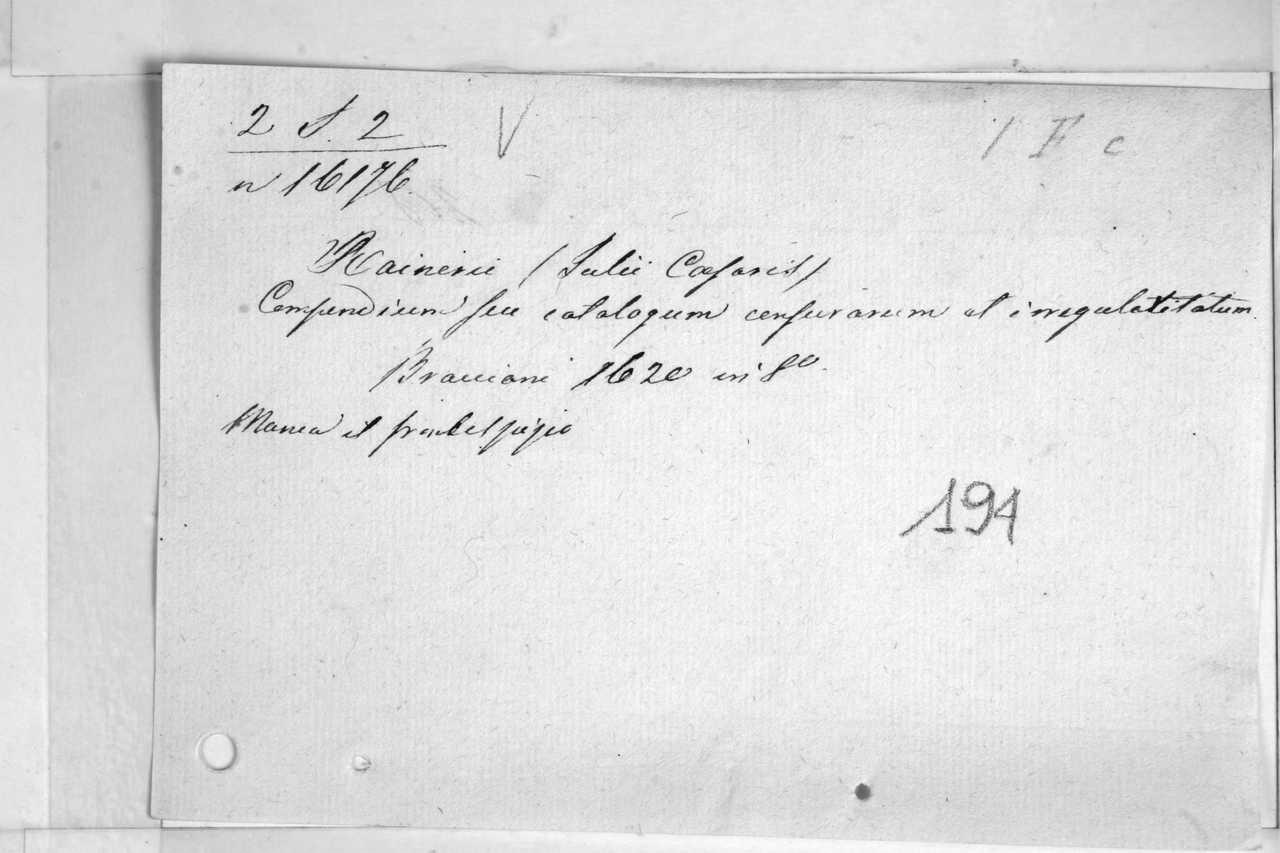 2 S. 2 V / F c
n 16176.
Rainerii (Julii Caesaris)
Compendium seu catalogum censurarum et irregulatitatum.
Bracciani 1620 in 8º.
Manca il frontespizio
194